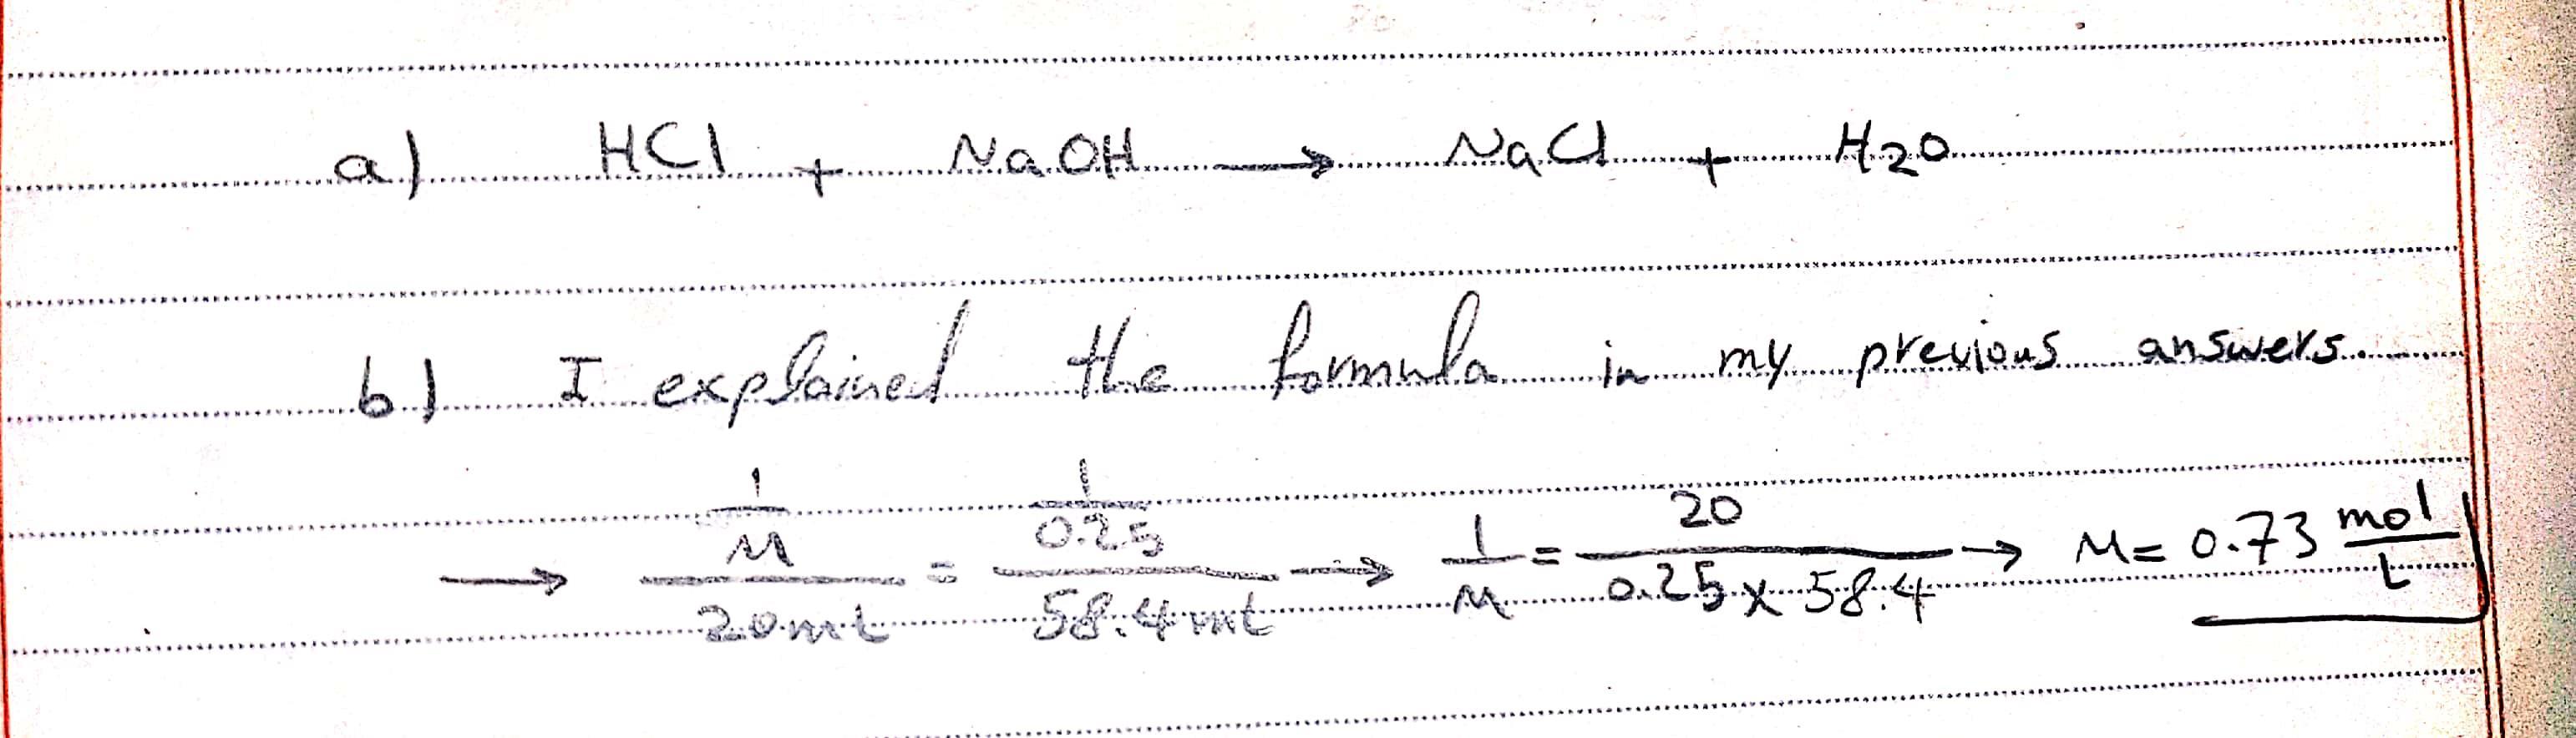 a) HCl + NaOH → NaCl + H2O
b) I explained the formula in my previous answers.
→ (1/M)/(20ml) = (1/0.25)/(58.4ml) → 1/M = 20/(0.25 x 58.4) → M = 0.73 mol/L